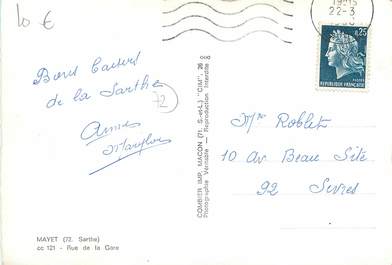 10 €
19H15
22-3
0,25
RÉPUBLIQUE FRANÇAISE
Bons baisers
de la Sarthe
72
COMBIER IMP. MACON (71. S.-et-L.) "CIM"
Photographie Véritable — Reproduction Interdite
Mme Roblet
10 Av Beau Site
92 Sèvres
MAYET (72. Sarthe)
cc 121 - Rue de la Gare